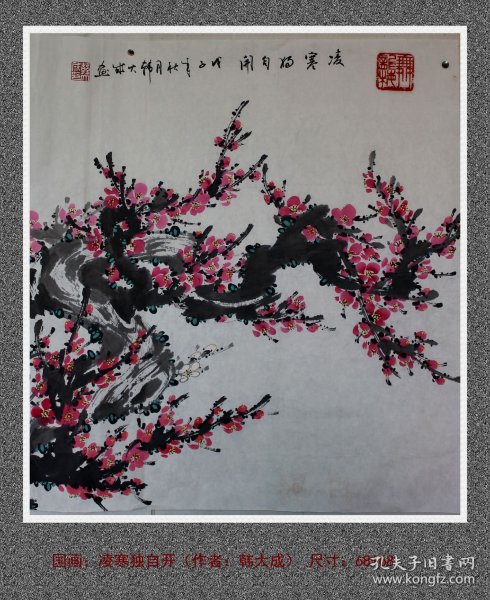 凌寒独自开 戊子年秋月韩大成画
国画：凌寒独自开（作者：韩大成） 尺寸：68
孔夫子旧书网
www.kongfz.com